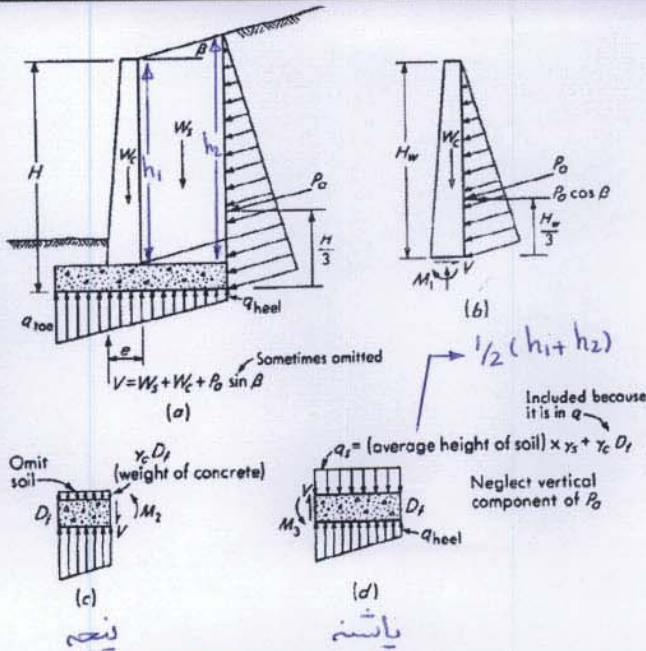 β
H
W_c
h₁
W_s
h₂
P_a
H/3
q_toe
q_heel
e
Sometimes omitted
V = W_s + W_c + P_a sin β
(a)
H_w
W_c
P_a
P_a cos β
H_w/3
M₁
V
(b)
1/2 (h₁ + h₂)
Included because
it is in q
q_s = (average height of soil) × γ_s + γ_c D_f
Neglect vertical
component of P_a
V
M₃
D_f
q_heel
(d)
پاشنه
Omit
soil
γ_c D_f
(weight of concrete)
D_f
M₂
V
(c)
پنجه